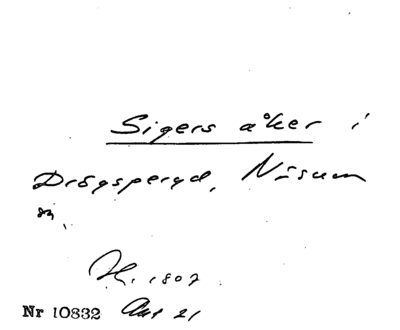 Sigers åker i
Drögsperyd, Näsum
sn.
H. 1807
Nr 10832 Akt 21